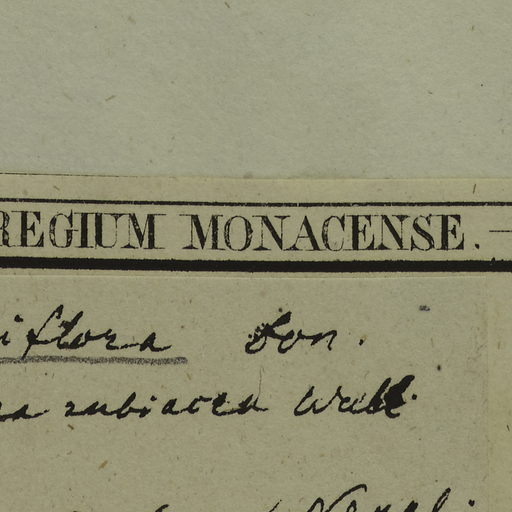 REGIUM MONACENSE. —
iflora Don.
ra rubiacea Wall.